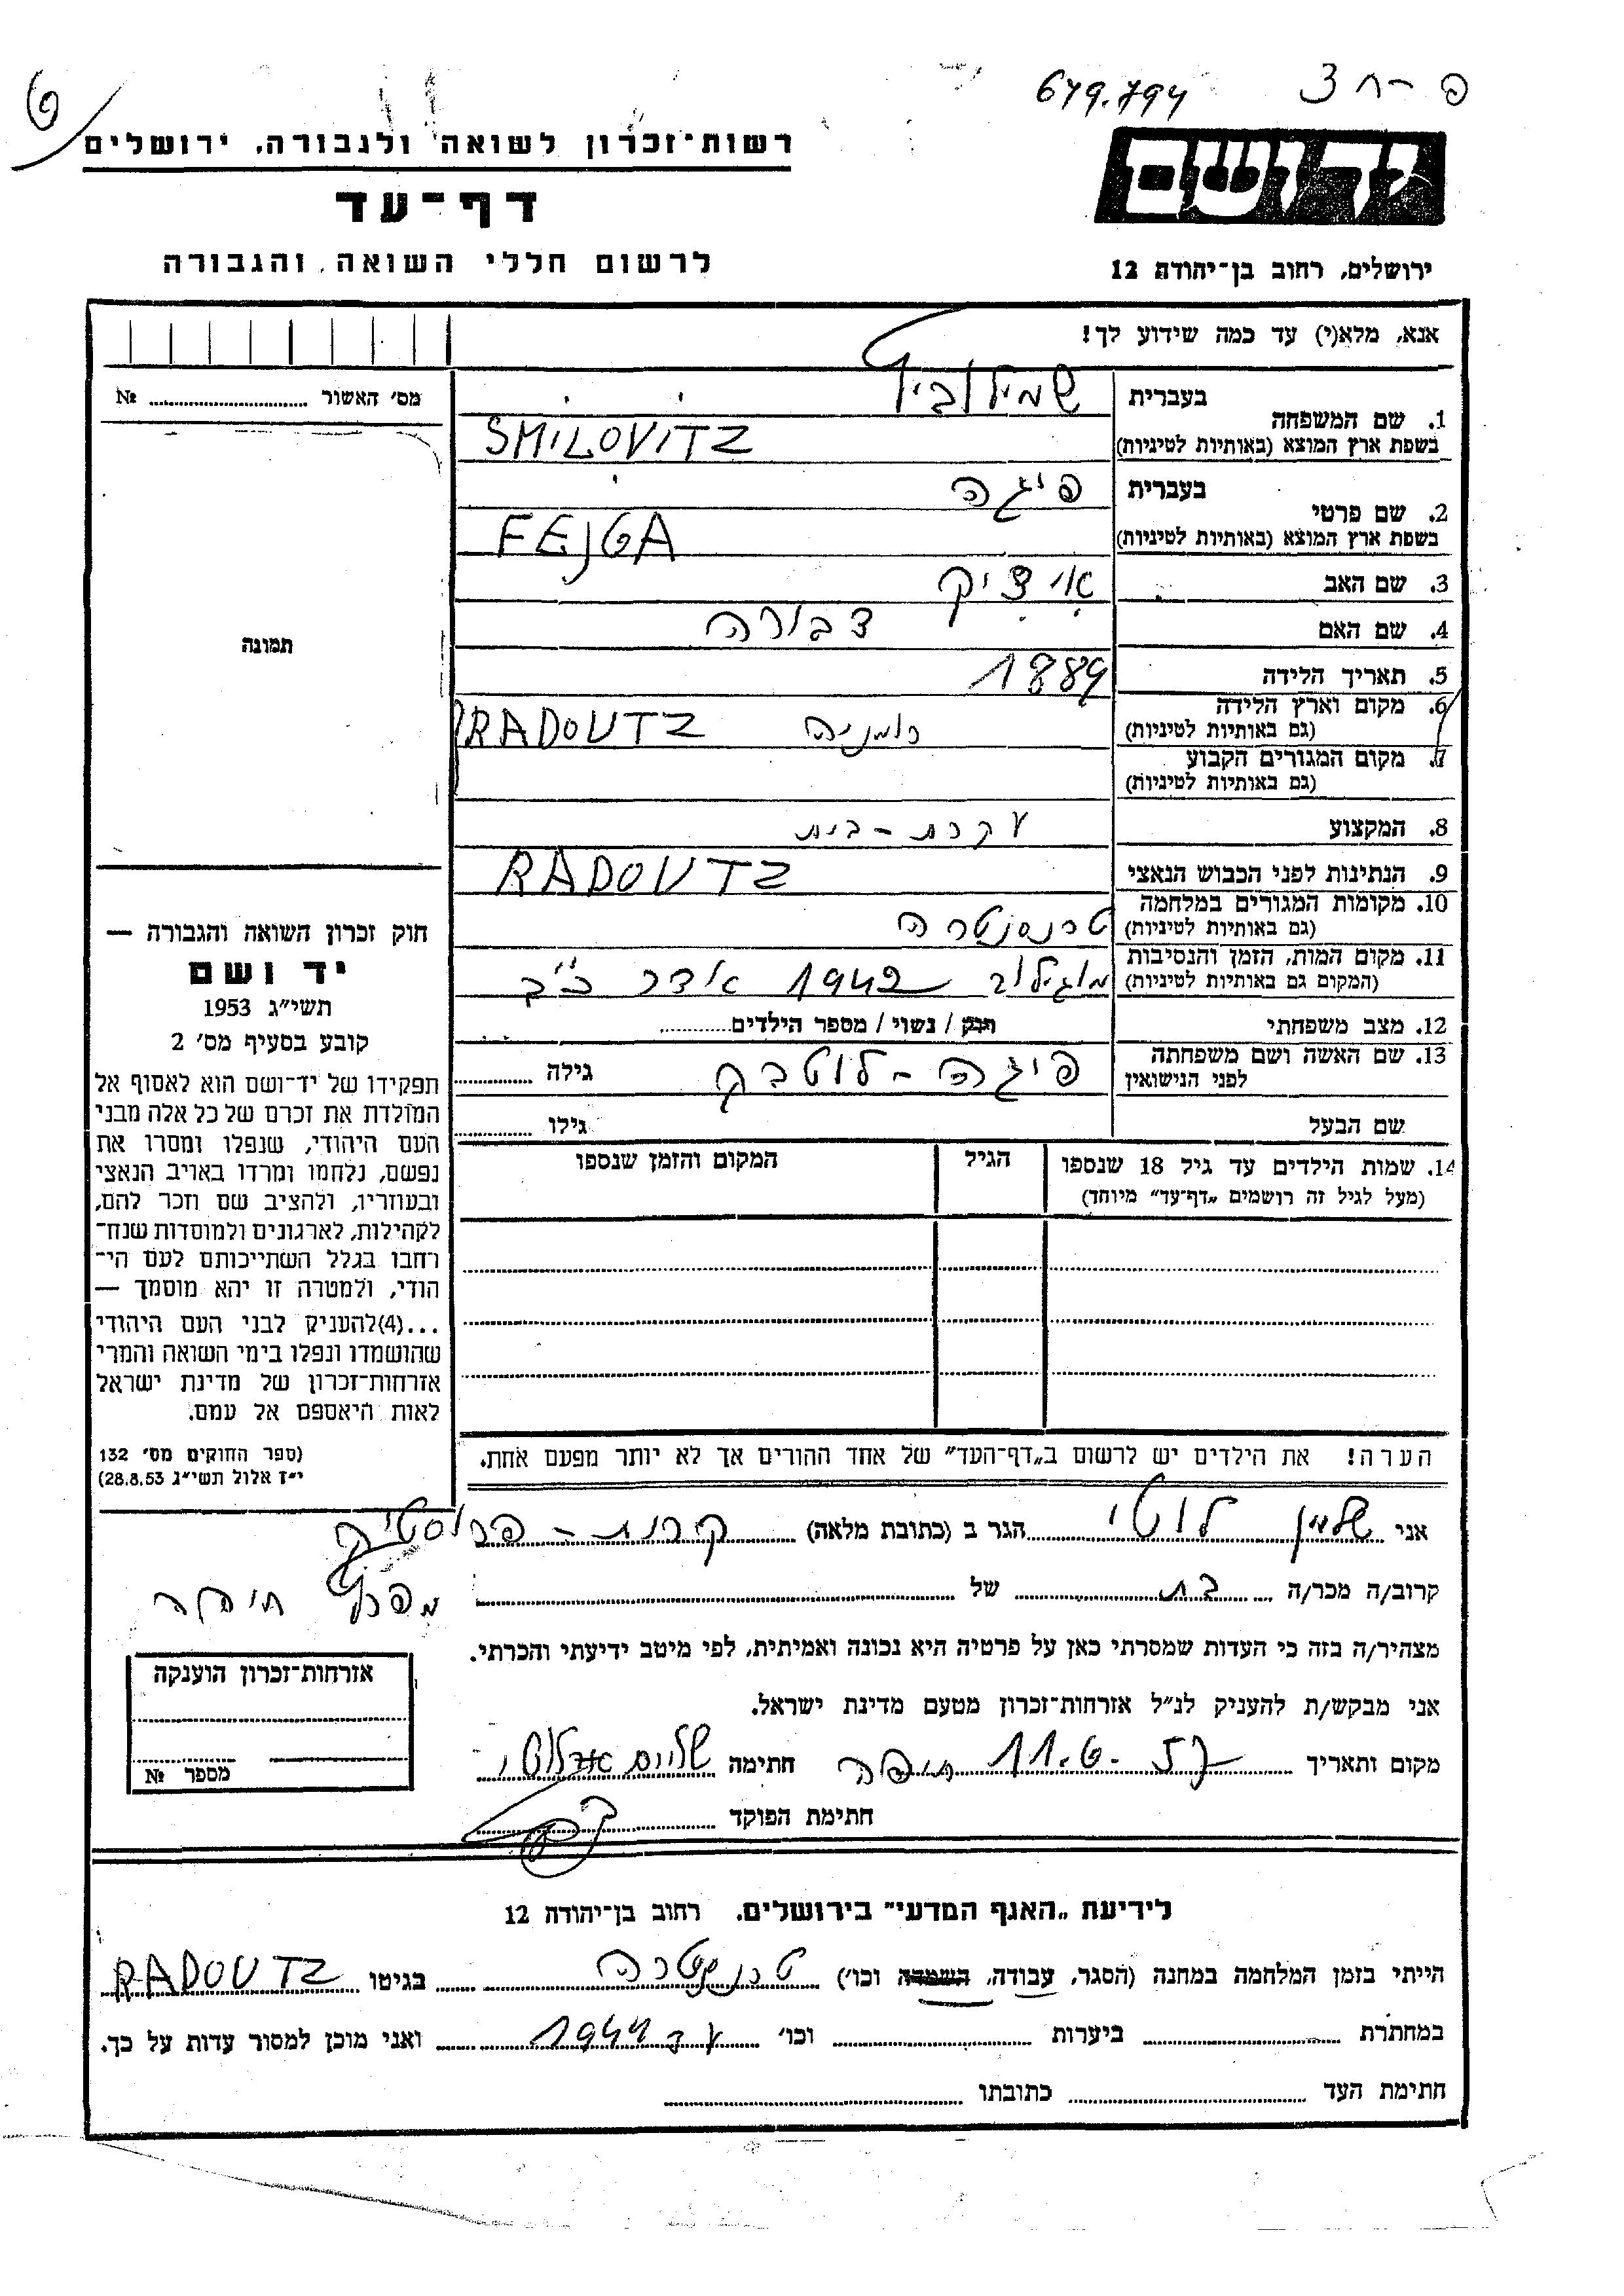 679.794
פ-ח 3
רשות־זכרון לשואה ולגבורה, ירושלים
דף־עד
לרשום חללי השואה והגבורה
יד ושם
ירושלים, רחוב בן־יהודה 12
אנא, מלא(י) עד כמה שידוע לך!
מס׳ האשור № 
תמונה
1. שם המשפחה
בעברית שמילוביץ
בשפת ארץ המוצא (באותיות לטיניות) SMILOVITZ
2. שם פרטי
בעברית פיגה
בשפת ארץ המוצא (באותיות לטיניות) FEJGA
3. שם האב איציק
4. שם האם דבורה
5. תאריך הלידה 1889
6. מקום וארץ הלידה
(גם באותיות לטיניות) רומניה RADOUTZ
7. מקום המגורים הקבוע
(גם באותיות לטיניות)
8. המקצוע עקרת-בית
9. הנתינות לפני הכבוש הנאצי RADOUTZ
10. מקומות המגורים במלחמה
(גם באותיות לטיניות) טרנסנטריה
11. מקום המות, הזמן והנסיבות
(המקום גם באותיות לטיניות) מוגילוב 1942 אדר כ״ב
12. מצב משפחתי רווק / נשוי / מספר הילדים
13. שם האשה ושם משפחתה
לפני הנישואין פיגה - לוטבק גילה
שם הבעל גילו
14. שמות הילדים עד גיל 18 שנספו
(מעל לגיל זה רושמים „דף־עד” מיוחד)
הגיל
המקום והזמן שנספו
חוק זכרון השואה והגבורה —
יד ושם
תשי״ג 1953
קובע בסעיף מס׳ 2
תפקידו של יד־ושם הוא לאסוף אל
המולדת את זכרם של כל אלה מבני
העם היהודי, שנפלו ומסרו את
נפשם, נלחמו ומרדו באויב הנאצי
ובעוזריו, ולהציב שם וזכר להם,
לקהילות, לארגונים ולמוסדות שנח־
רבו בגלל השתייכותם לעם הי־
הודי, ולמטרה זו יהא מוסמך —
...(4) להעניק לבני העם היהודי
שהושמדו ונפלו בימי השואה והמרי
אזרחות־זכרון של מדינת ישראל
לאות היאספם אל עמם.
(ספר החוקים מס׳ 132
י״ז אלול תשי״ג 28.8.53)
הערה! את הילדים יש לרשום ב„דף־העד” של אחד ההורים אך לא יותר מפעם אחת.
אני לוטי הגר ב (כתובת מלאה) קרית -
מפרץ חיפה
קרוב/ה מכר/ה בת של
מצהיר/ה בזה כי העדות שמסרתי כאן על פרטיה היא נכונה ואמיתית, לפי מיטב ידיעתי והכרתי.
אני מבקש/ת להעניק לנ״ל אזרחות־זכרון מטעם מדינת ישראל.
מקום ותאריך 11.6.57 חיפה חתימה
חתימת הפוקד
אזרחות־זכרון הוענקה
מספר №
לידיעת „האגף המדעי” בירושלים, רחוב בן־יהודה 12
הייתי בזמן המלחמה במחנה (הסגר, עבודה, השמדה וכו׳) טרנסנטריה בגיטו RADOUTZ
במחתרת ביערות וכו׳ עד 1944 ואני מוכן למסור עדות על כך.
חתימת העד כתובתו